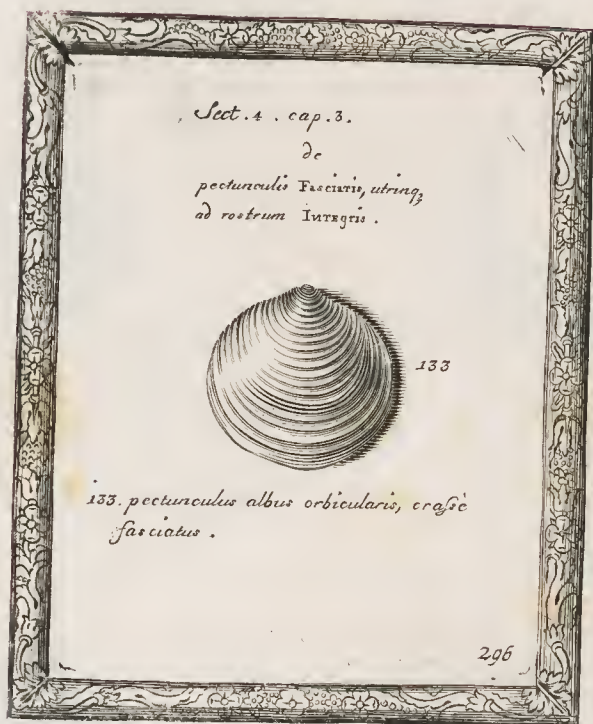 Sect. 4. cap. 3.
de
pectunculis Fasciatis, utrinq;
ad rostrum Integris.
133
133. pectunculus albus orbicularis, crassè
fasciatus.
296